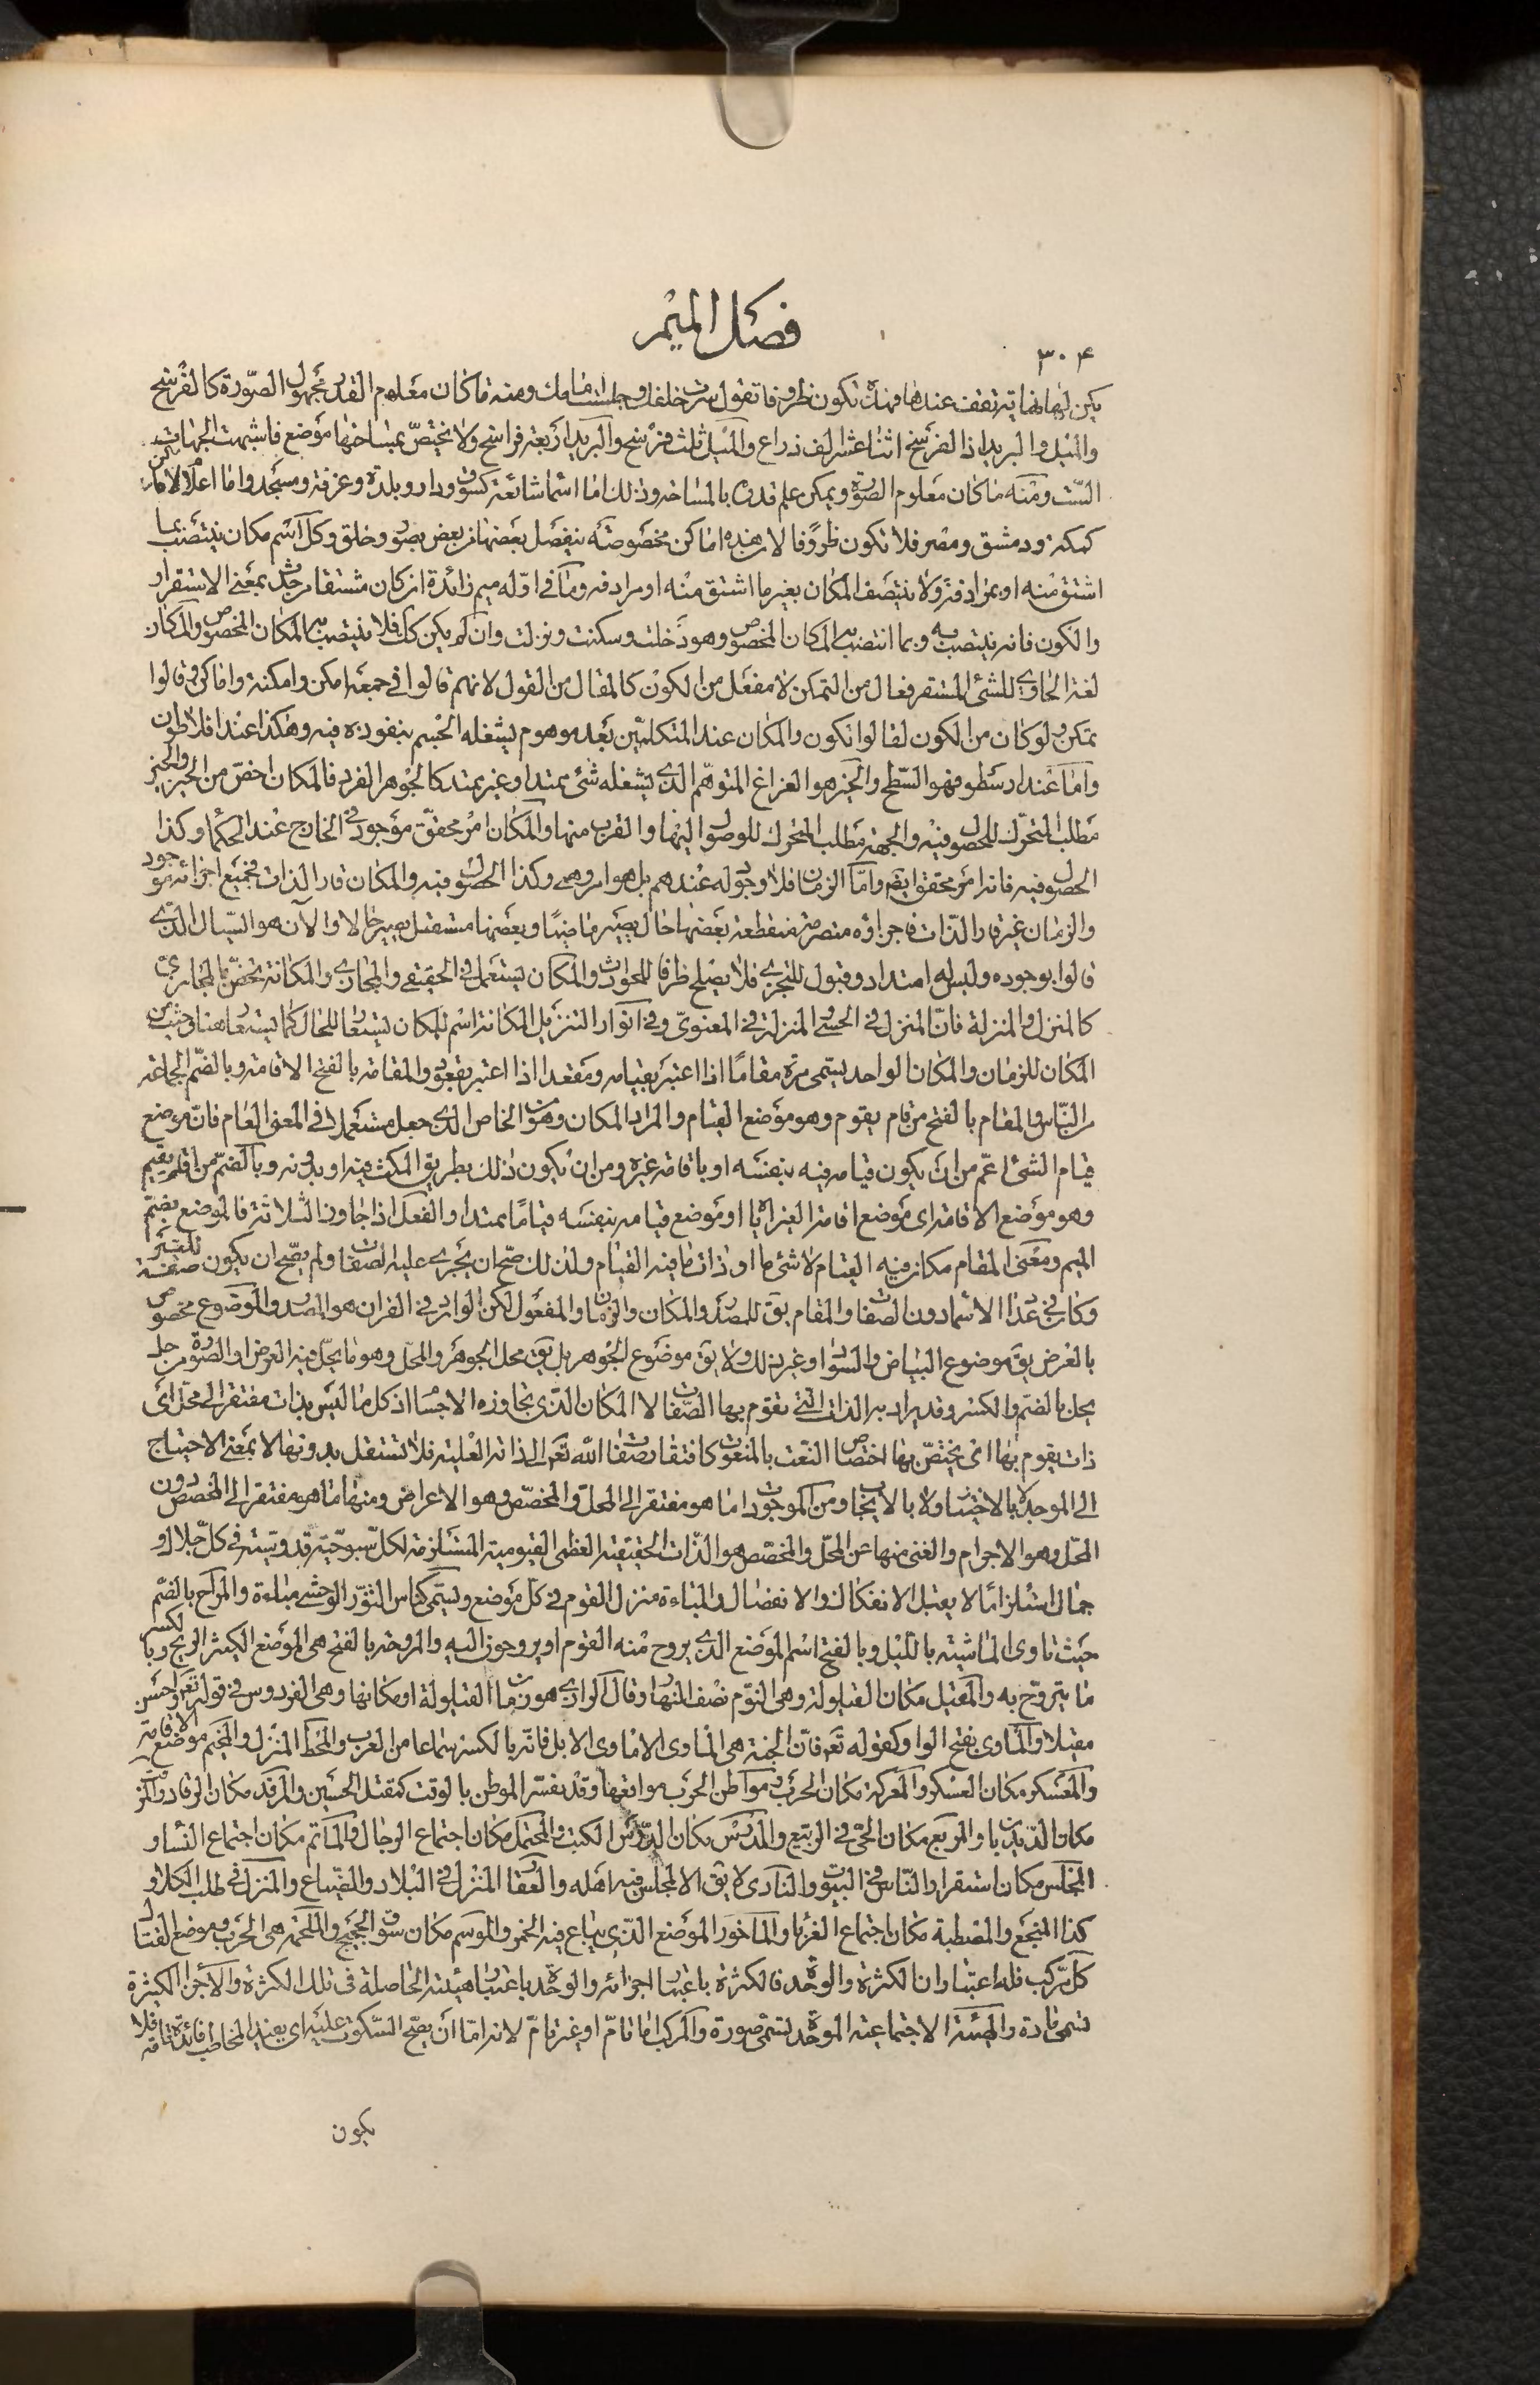 فصل الميم
٣٠۴
يكن لها نهاية تقف عندها فهذه تكون ظروفا تقول سرت خلفك وجلست امامك ومنه ما كان معلوم القدر مجهول الصورة كالفرسخ
والميل والبريد اذ الفرسخ اثنا عشر الف ذراع والميل ثلث فرسخ والبريد اربعة فراسخ ولا يختص بمساحتها موضع فاشبهت الجهات
الست ومنه ما كان معلوم الصورة ويمكن علم قدره بالمساحة وذلك اما اسما شائعة كسوق ودار وبلدة وغرفة ومسجد واما اعلاما لامكن
كمكة ودمشق ومصر فلا تكون ظروفا لان هذه اماكن مخصوصة ينفصل بعضها من بعض بصور وخلق وكل اسم مكان ينتصب بما
اشتق منه او بمرادفه ولا ينتصب المكان بغير ما اشتق منه او مرادفه وما في اوله ميم زائدة ان كان مشتقا من حدث بمعنى الاستقرار
والكون فانه ينتصب به وبما انتصب به المكان المخصوص وهو دخلت وسكنت ونزلت وان لم يكن كك فلا ينتصب به المكان المخصوص والمكان
لغة الحاوي للشئ المستقر فعال من التمكن لا مفعل من الكون كالمقال من القول لانهم قالوا في جمعه امكن وامكنة واماكن وقالوا
تمكن ولو كان من الكون لقالوا تكون والمكان عند المتكلمين بعد موهوم يشغله الجسم بنفوذه فيه وهكذا عند افلاطون
واما عند ارسطو فهو السطح والحيز هو الفراغ المتوهم الذي يشغله شئ ممتد او غير ممتد كالجوهر الفرد فالمكان اخص من الحيز والحيز
مطلب المتحرك للحصول فيه والجهة مطلب المتحرك للوصول اليها والقرب منها والمكان امر محقق موجود في الخارج عند الحكما وكذا
الحصول فيه فانه امر محقق ايضا واما الزمان فلا وجود له عندهم بل هو امر وهمي وكذا الحصول فيه والمكان قار الذات فجميع اجزائه موجود
والزمان غير قار الذات فاجزاؤه متصرمة منقطعة بعضها حال يصير ماضيا وبعضها مستقبل يصير حالا والآن هو السيال الذي
قالوا بوجوده وليس له امتداد وقبول للتجزي فلا يصلح ظرفا للحوادث والمكان يستعمل في الحقيقي والمجازي والمكانة تختص بالمجازي
كالمنزل والمنزلة فان المنزل في الحسي والمنزلة في المعنوي وفي انوار التنزيل المكانة اسم للمكان يستعار للحال كما يستعار هنا وحيث من
المكان للزمان والمكان الواحد يسمى مرة مقاما اذا اعتبر بقيامه ومقعدا اذا اعتبر بقعوده والمقامة بالفتح الاقامة وبالضم الجماعة
من الناس والمقام بالفتح من قام يقوم وهو موضع القيام والمراد المكان وهو من الخاص الذي جعل مستعملا في المعنى العام فان موضع
قيام الشئ اعم من ان يكون قيامه فيه بنفسه او باقامة غيره ومن ان يكون ذلك بطريق المكث فيه او بدونه وبالضم من اقام يقيم
وهو موضع الاقامة اى موضع اقامة الغير اياه او موضع قيامه بنفسه قياما ممتدا والفعل اذا جاوز الثلاثة فالموضع بضم
الميم ومعنى المقام مكان فيه القيام لا شئ ما او ذات ما فيه القيام ولذلك صح ان يجرى عليه الصفات ولم يصح ان يكون صفة للغير
وكان في عداد الاسما دون الصفات والمقام يق للمصدر والمكان والزمان والمفعول لكن الوارد في القران هو المصدر والموضوع مخصوص
بالعرض يق موضوع البياض والسواد وغير ذلك ولا يق موضوع الجوهر بل يق محل الجوهر والمحل وهو ما يحل فيه العرض او الصورة من حل
يحل بالضم والكسر وقد يراد به الذات التي تقوم بها الصفات لا المكان الذي تجاوزه الاجسام اذ كل ما ليس بذات مفتقر الى محل اى
ذات يقوم بها اى يختص بها اختصاص النعت بالمنعوت كافتقار صفات الله تع الى ذاته العلية فلا تستقل بدونها لا بمعنى الاحتياج
الى الموجد لا بالاختيار ولا بالايجاب ومن الموجودات ما هو مفتقر الى المحل والمخصص وهو الاعراض ومنها ما هو مفتقر الى المخصص دون
المحل وهو الاجرام والغنى منها عن المحل والمخصص هو الذات الحقيقية العظمى القيومية المستلزمة لكل سبوحية قدوسية في كل جلال و
جمال استلزاما لا يقبل الانفكاك والانفصال والمباءة منزل القوم في كل موضع ويسمى كناس الثور الوحشي مباءة والمراح بالضم
حيث تاوى الماشية بالليل وبالفتح اسم الموضع الذي يروح منه القوم او يروحون اليه والمروحة بالفتح هى الموضع الكثير الريح وبالكسر
ما يتروح به والمقيل مكان القيلولة وهى النوم نصف النهار وقال الرازى هو زمان القيلولة او مكانها وهى الفردوس في قوله تع واحسن
مقيلا والمأوى بفتح الواو كقوله تع فان الجنة هى المأوى الا مأوى الابل فانه بالكسر سماعا من العرب والمحط المنزل والمخيم موضع الاقامة
والمعسكر مكان العسكر والمعركة مكان الحرب ومواطن الحرب مواقعها وقد يفسر الموطن بالوقت كمقتل الحسين والمرقد مكان الرقاد والمرقب
مكان الديدبان والمربع مكان الحى في الربيع والمدرس مكان الدرس الكتب والمحتفل مكان اجتماع الرجال والماتم مكان اجتماع النساء و
المجلس مكان استقرار الناس في البيوت والنادى لا يق الا لمجلس فيه اهله والعقار المنزل في البلاد والضياع والمنزل في طلب الكلاء و
كذا المنتجع والمصطبة مكان اجتماع الغرباء والماخور الموضع الذي يباع فيه الخمر والموسم مكان سوق الحجيج والملحمة هى الحرب وموضع القتال
كل مركب فله اعتباران الكثرة والوحدة فالكثرة باعتبار اجزائه والوحدة باعتبار هيئته الحاصلة في تلك الكثرة والاجزاء الكثيرة
تسمى مادة والهيئة الاجتماعية الموحدة تسمى صورة والمركب اما تام او غير تام لانه اما ان يصح السكوت عليه اى يفيد المخاطب فائدة تامة فلا
يكون